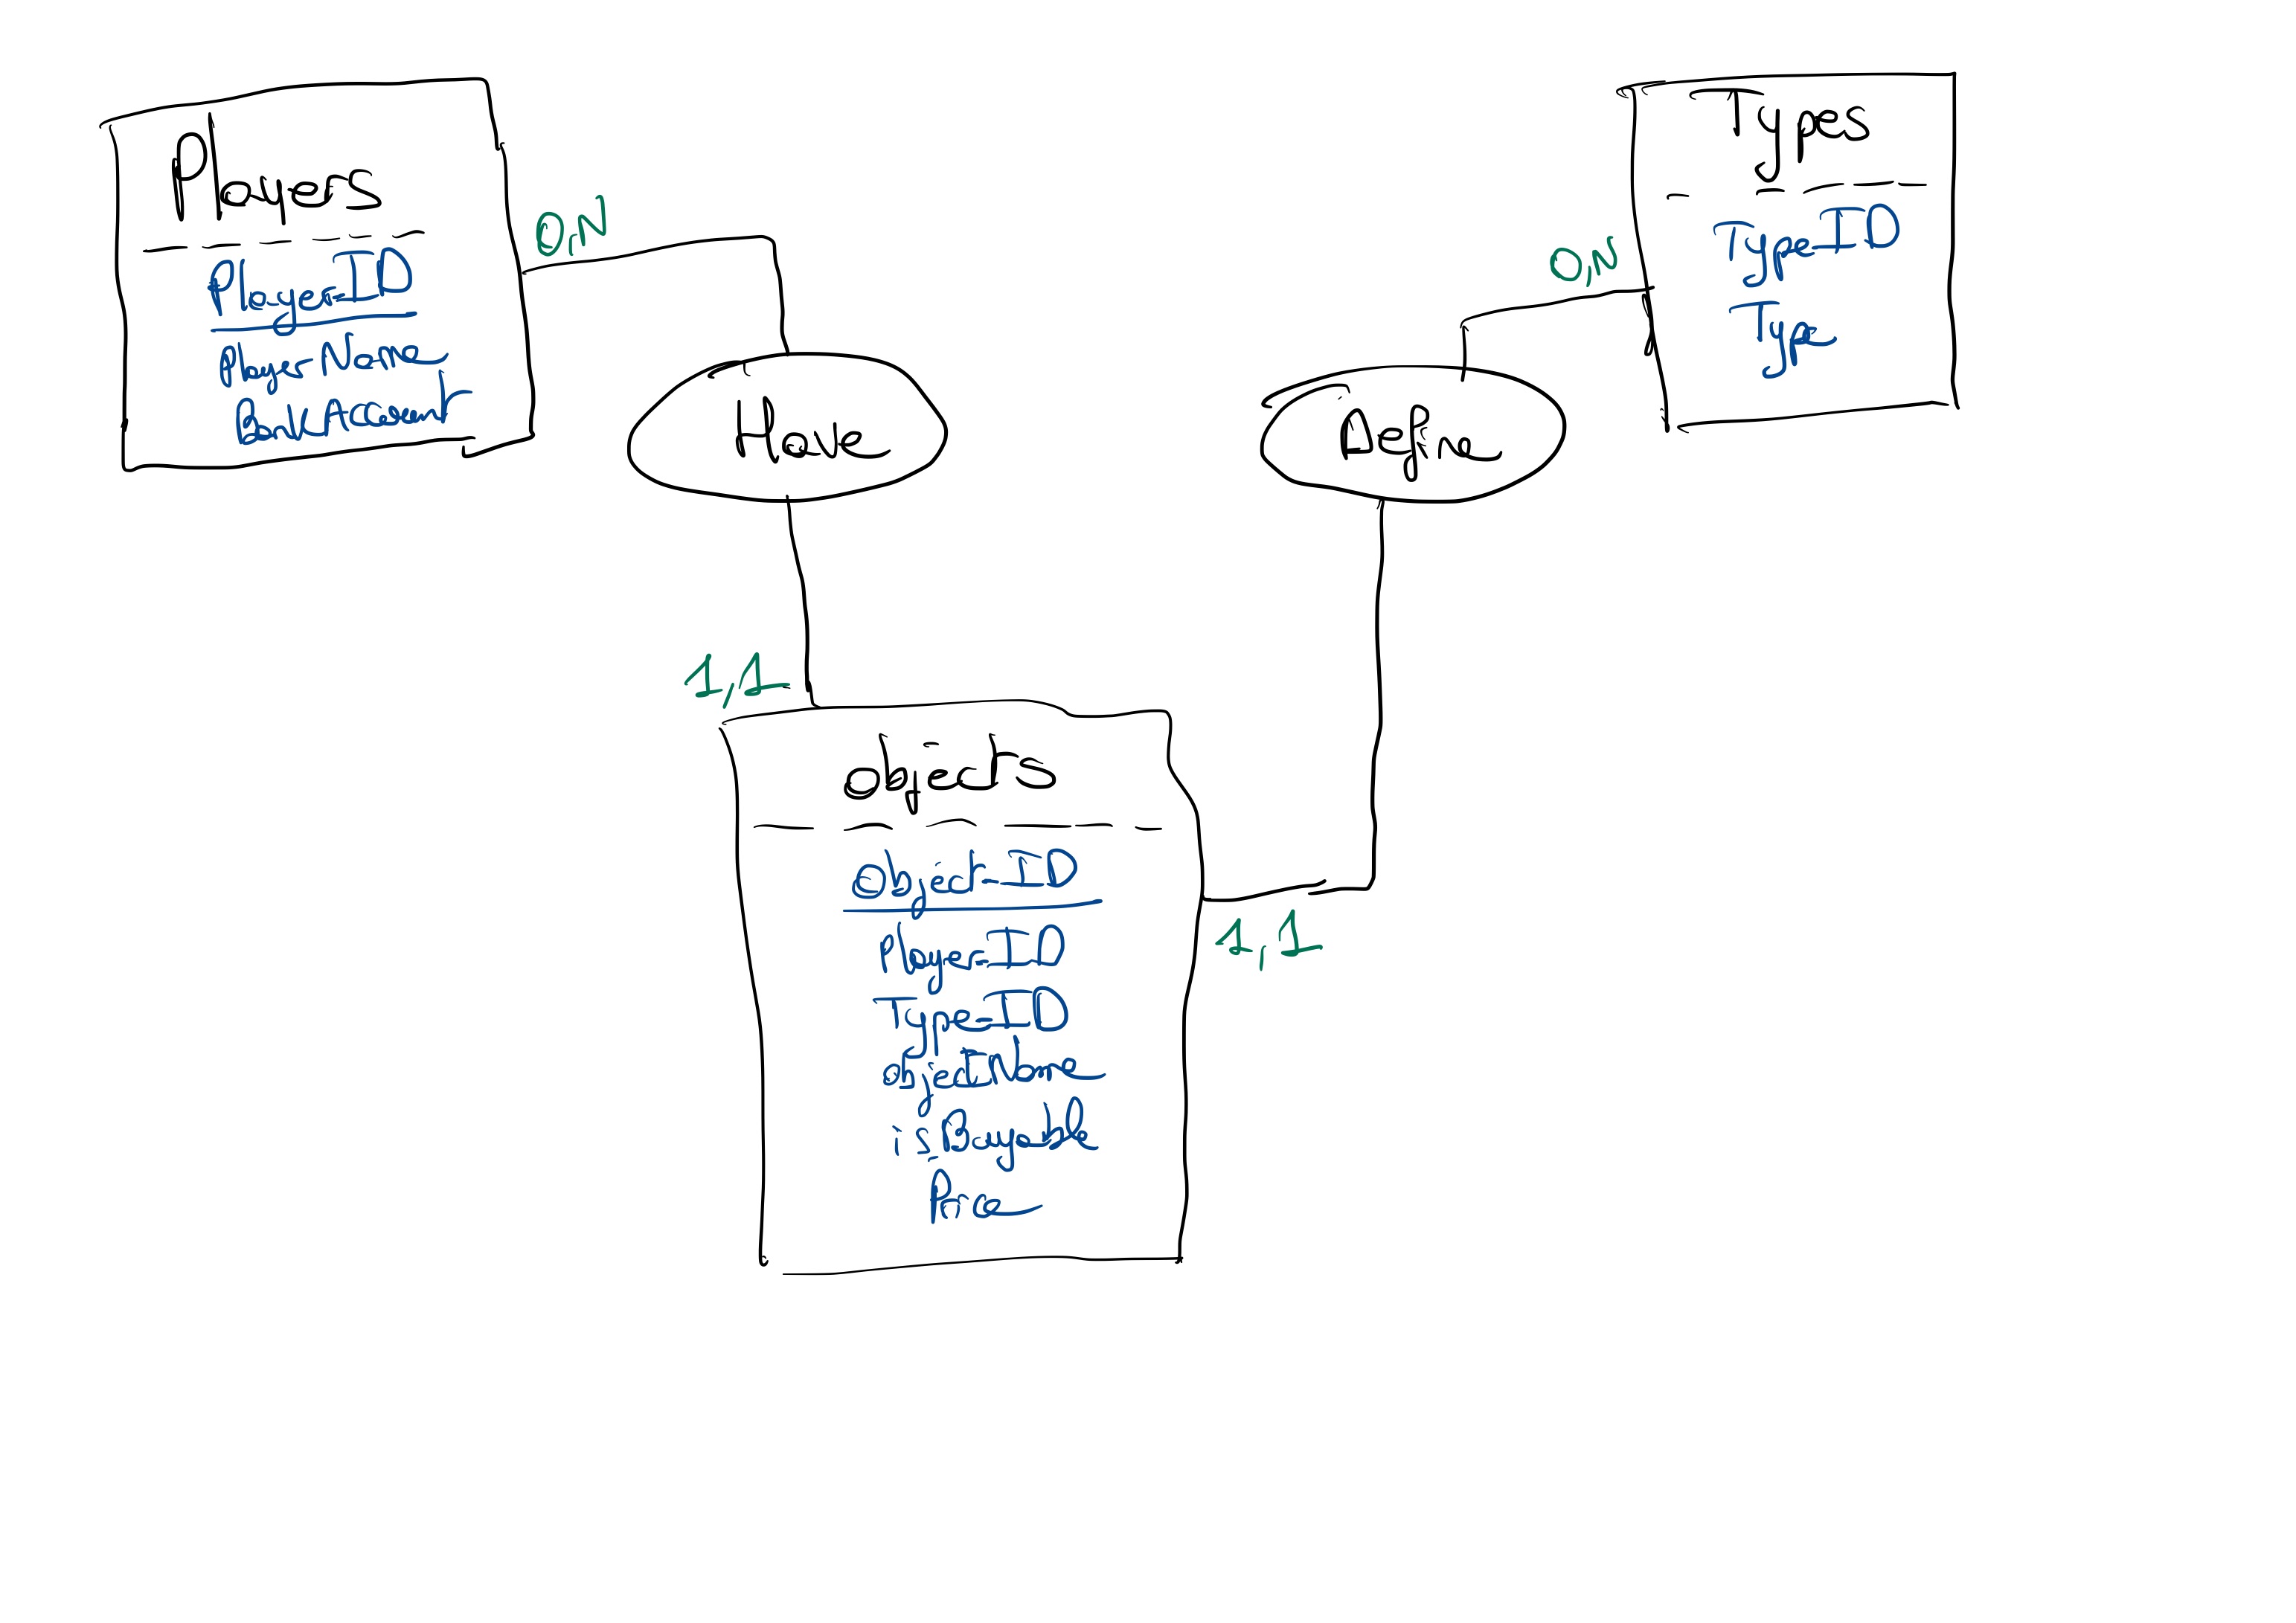 Players
Player_ID
PlayerName
BankAccount
0,N
Have
1,1
Types
Type_ID
Type
0,N
Define
objects
Object_ID
Player_ID
Type_ID
objectName
is_Buyable
Price
1,1